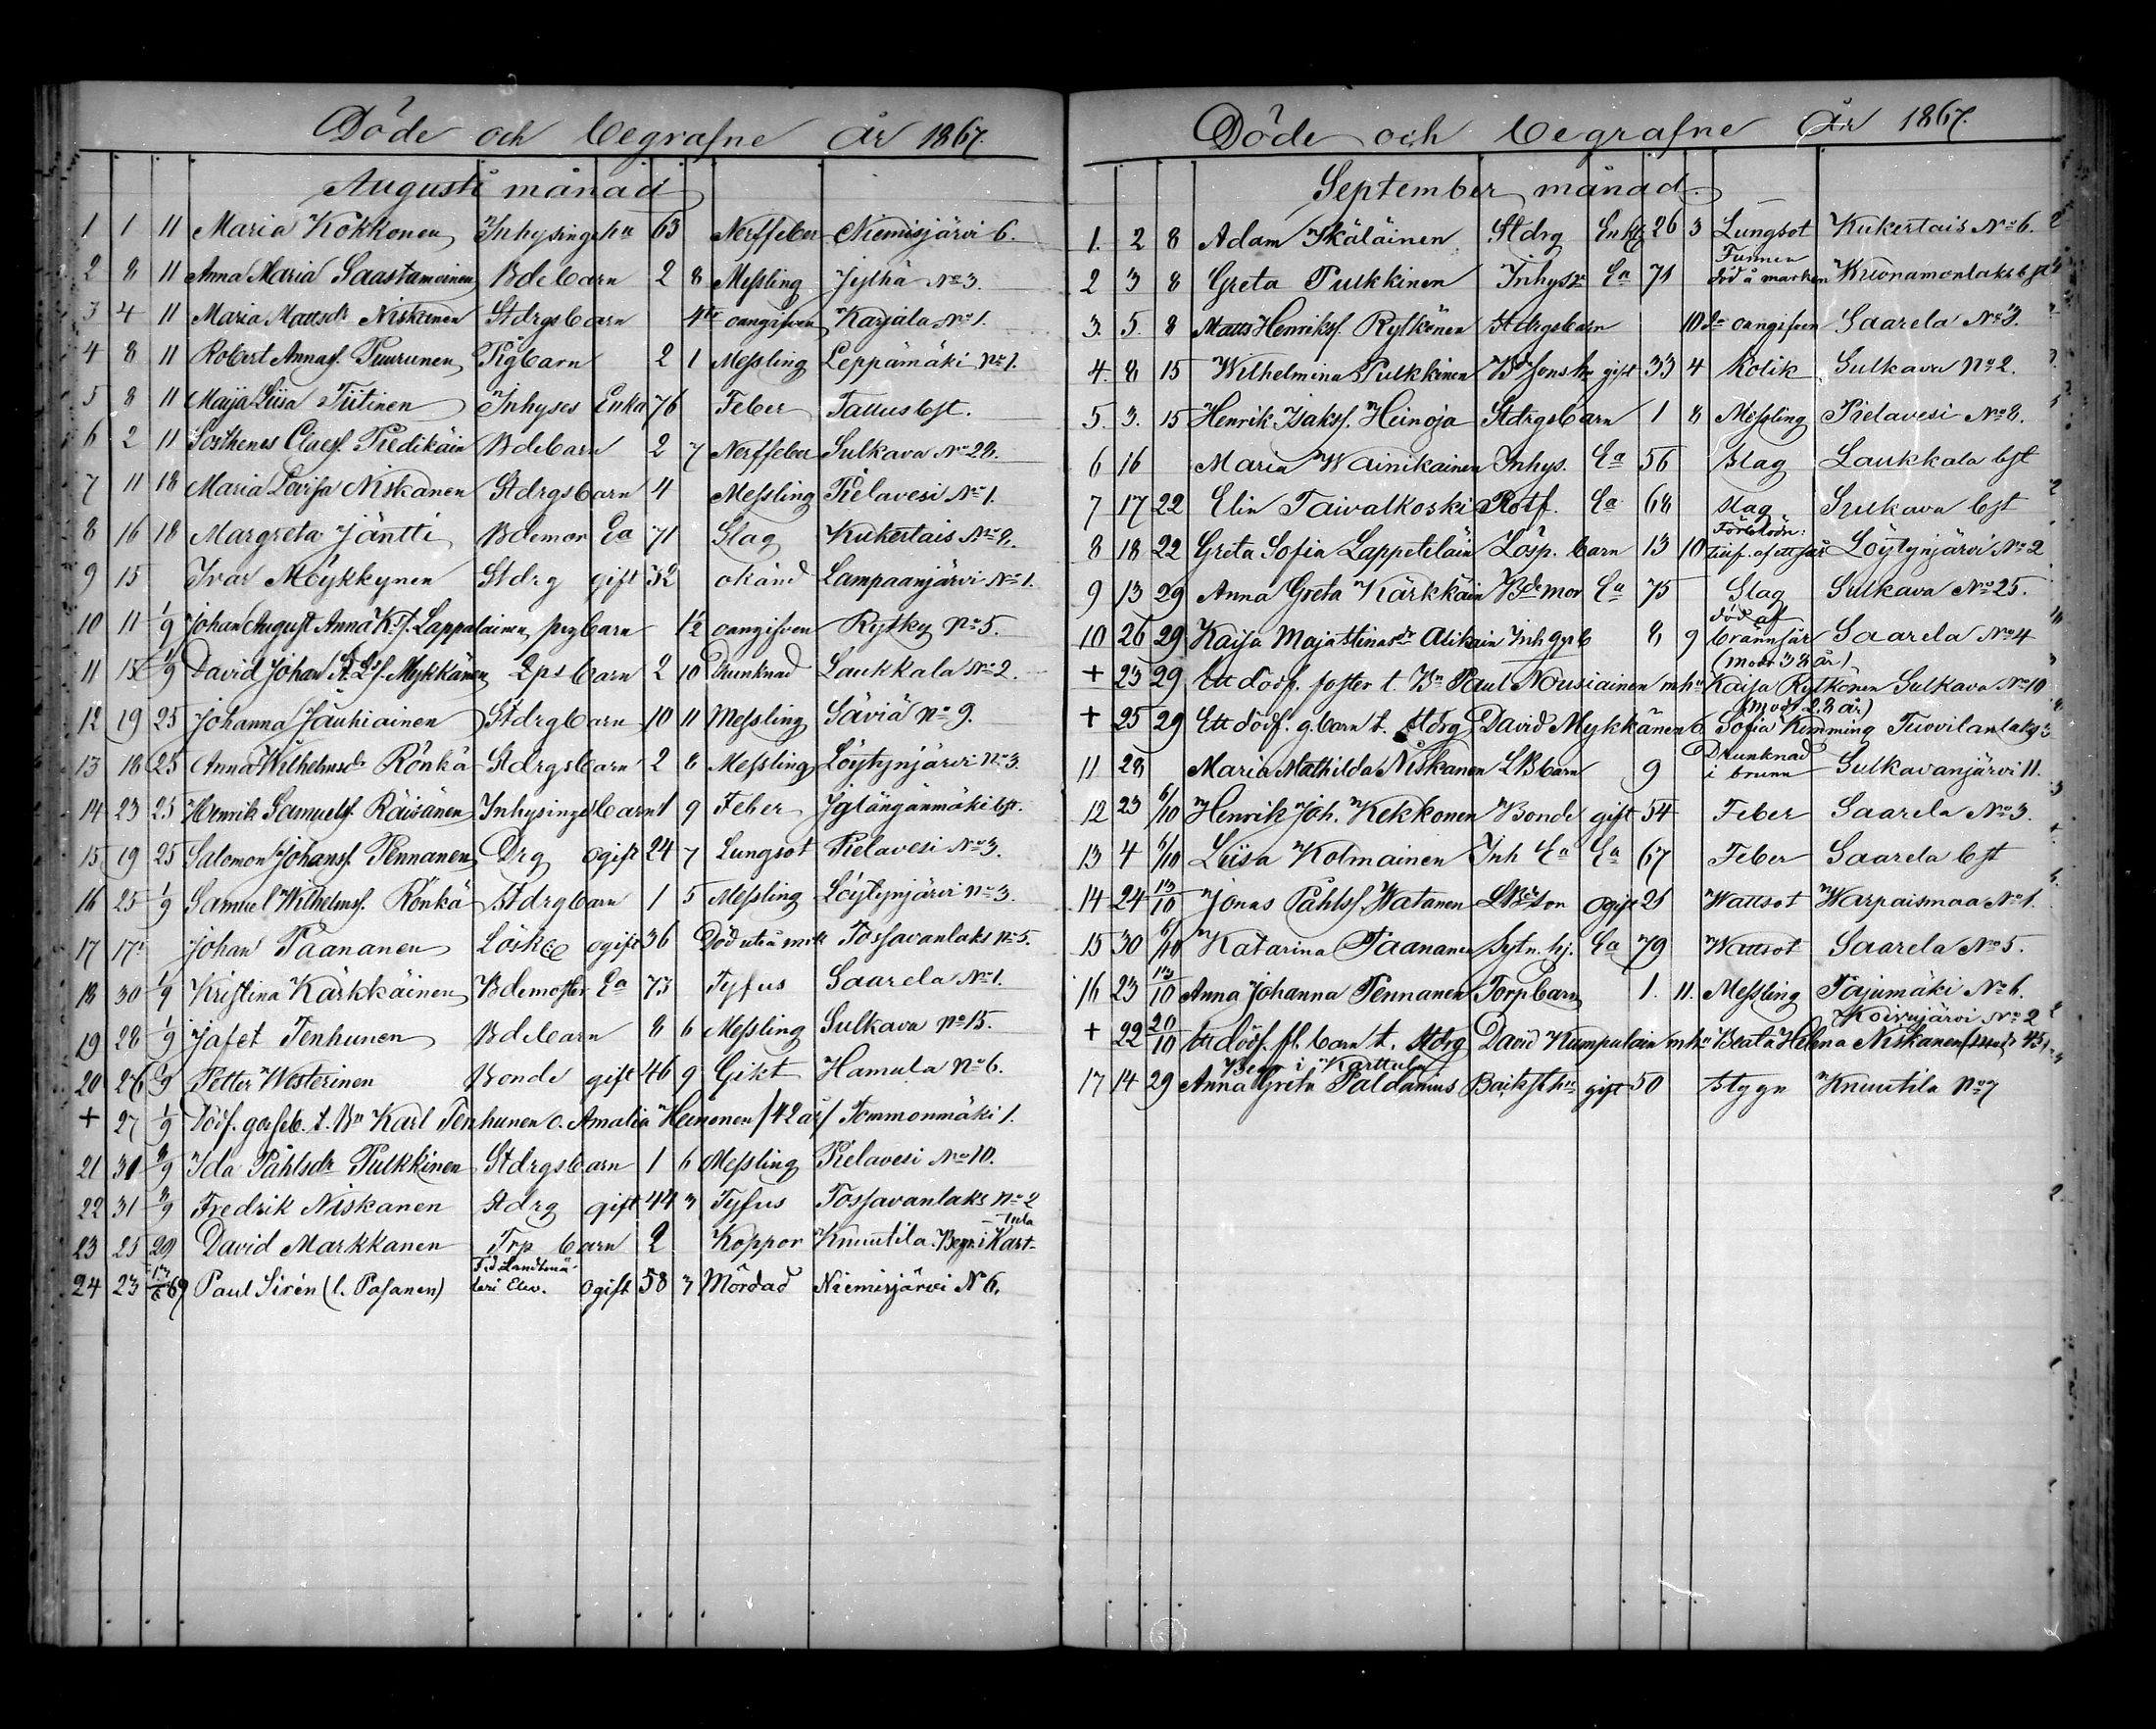 Döde och begrafne år 1867.
Augusti månad
1 1 11 Maria Kokkonen Inhysinge hu 63 Nerffeber Niemisjärvi 6.
2 8 11 Anna Maria Saastamoinen Bdebarn 2 8 Messling Jylhä No 3.
3 4 11 Maria Mattsdr Niskanen Stdrgsbarn oangifven Karjala No 1.
4 8 11 Robert Annas. Puurunen Pigbarn 2 1 Messling Leppämäki No 1.
5 8 11 Maija Liisa Tiitinen Inhyses Enka 76 Feber Tallus bst.
6 2 11 Sosthenes Claess. Piedikäin Bdebarn 2 7 Nerffeber Sulkava No 28.
7 11 18 Maria Lovisa Niskanen Stdrgsbarn 4 Messling Pielavesi No 1.
8 16 18 Margreta Jäntti Bdemor Ea 71 Slag Kukertais No 8.
9 15 Ivar Möykkynen Stdrg gift 32 okänd Lampaanjärvi No 1.
10 11 1/9 Johan August Anna K:s. Lappalainen pigbarn 1/2 oangifven Rytky No 5.
11 15 1/9 David Johan A. Ls. Mykkänen Lps barn 2 10 Drunknad Laukkala No 2.
12 19 25 Johanna Jauhiainen Stdrgbarn 10 11 Messling Säviä No 9.
13 18 25 Anna Wilhelmsdr Rönkä Stdrgsbarn 2 8 Messling Löytynjärvi No 3.
14 23 25 Henrik Samuelss. Räisänen Inhysingebarn 1 9 Feber Jylängänmäki bst.
15 19 25 Salomon Johanss. Pennanen Drg ogift 24 7 Lungsot Pielavesi No 3.
16 25 1/9 Samuel Wilhelmss. Rönkä Stdrgbarn 1 5 Messling Löytynjärvi No 3.
17 17 Johan Paananen Lösk ogift 36 Död ute å mrk Tossavanlaks No 5.
18 30 1/9 Kristina Kärkkäinen Bdemoster Ea 73 Tyfus Saarela No 1.
19 28 1/9 Jafet Tenhunen Bdebarn 8 6 Messling Sulkava No 15.
20 26 1/9 Petter Westerinen Bonde gift 46 9 Gikt Hamula No 6.
+ 27 1/9 Dödf. gosseb. t. Bn Karl Tenhunen o. Amalia Heinonen /42 år/ Tommonmäki 1.
21 31 8/9 Ida Påhlsdr Pulkkinen Stdrgsbarn 1 6 Messling Pielavesi No 10.
22 31 8/9 Fredrik Niskanen Stdrg gift 44 3 Tyfus Tossavanlaks No 2
23 25 29 David Markkanen Trp barn 2 Koppor Knuutila. Begr. i Kart-
-tula
24 23 Paul Sirén (l. Pasanen) F.d Landtmäteri Elev. ogift 58 3 Mördad Niemisjärvi N 6.
Döde och begrafne År 1867.
September månad.
1. 2 8 Adam Ikäläinen Stdrg Enkl 26 3 Lungsot Kukertais No 6.
2 3 8 Greta Pulkkinen Inhys Ea 71 Funnen död å marken Kuonamonlaks bst
3. 5. 8 Matts Henrikss. Rytkönen Stdrgsbarn 10 oangifven Saarela No 3.
4. 8 15 Wilhelmina Pulkkinen gift 33 4 Kolik Sulkava No 2.
5. 3. 15 Henrik Isakss. Heinoja Stdrgsbarn 1 8 Messling Pielavesi No 8.
6 16 Maria Wainikainen Inhys. Ea 56 Slag Laukkala bst
7 17 22 Elin Taivalkoski Rotf. Ea 68 Slag Sulkava bst
8 18 22 Greta Sofia Lappeteläin Lösp. barn 13 10 Förblödn: Löytynjärvi No 2
9 13 29 Anna Greta Kärkkäin Bdemor Ea 75 Slag Sulkava No 25.
10 26 29 Kaisa Maja Stinasdr Alikain Inh gsb 8 9 död af brännsår Saarela No 4
+ 23 29 Ett dödf. foster t. Bn Paul Nousiainen m hu Kaisa Rytkönen Sulkava No 10
(modr 38 år)
+ 25 29 Ett dödf. g.barn t. Stdrg David Mykkänen o. Sofia Kemming Tuovilanlaks 3
(modr 28 år)
11 28 Maria Mathilda Niskanen LBbarn 9 Drunknad i brunn Sulkavanjärvi 11.
12 23 6/10 Henrik Joh. Kekkonen Bonde gift 54 Feber Saarela No 3.
13 4 6/10 Liisa Kolmainen Inh Ea Ea 67 Feber Saarela bst
14 24 13/10 Jonas Påhls. Watanen LBdeson ogift 21 Wattsot Warpaismaa No 1.
15 30 6/10 Katarina Paananen Sytn. hj. Ea 79 Wattsot Saarela No 5.
16 23 13/10 Anna Johanna Pennanen Torpbarn 1. 11. Messling Pajumäki No 6.
Koivujärvi No 2
+ 22 20/10 Ett dödf. fl. barn t. Stdrg David Kumpulain m hu Beata Helena Niskanen (modr 45)
Begr. i Karttula
17 14 29 Anna Greta Paldanius gift 50 Stygn Knuutila No 7